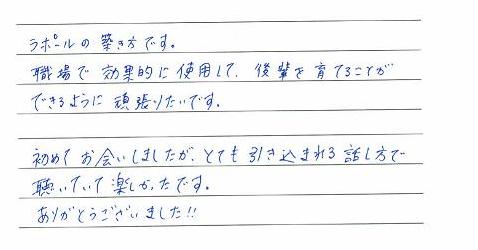 ラポールの築き方です。
職場で効果的に使用して、後輩を育てることが
できるように頑張りたいです。
初めてお会いしましたが、とても引き込まれる話し方で
聴いていて楽しかったです。
ありがとうございました!!